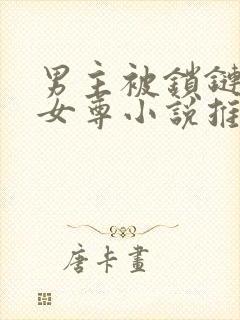 男主被鎖鏈
女尊小說推
唐卡畫